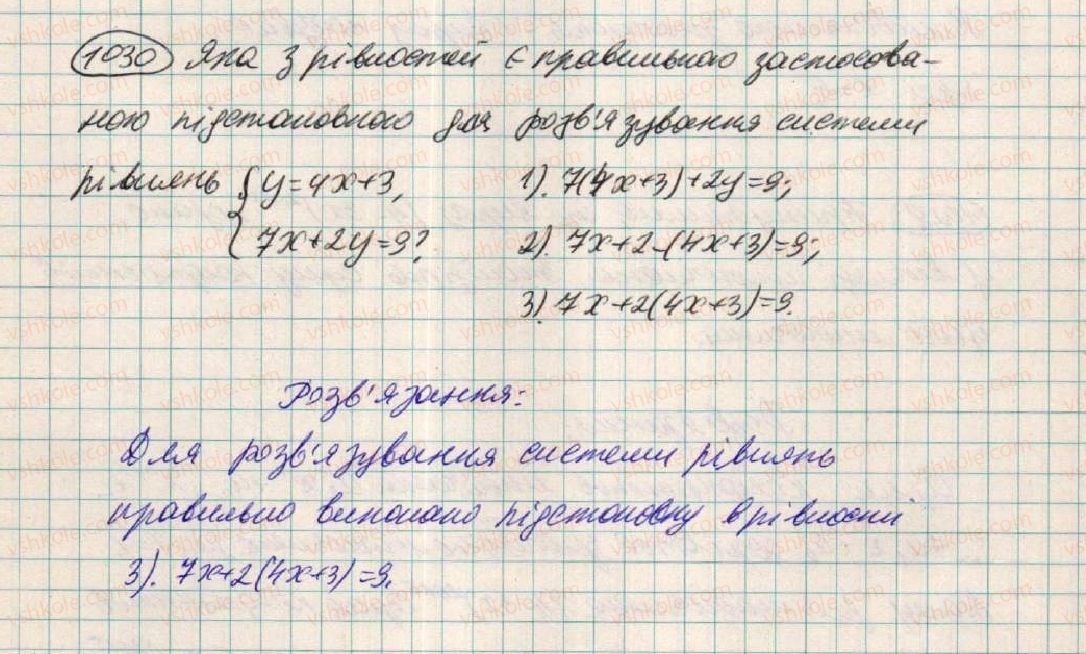 1030 Яка з рівностей є правильною застосова-
ною підстановкою для розв'язування системи
рівнянь { y=4x+3, 1). 7(4x+3)+2y=9;
7x+2y=9? 2). 7x+2-(4x+3)=9;
3). 7x+2(4x+3)=9.
Розв'язання:
Для розв'язування системи рівнянь
правильно виконано підстановку в рівності
3). 7x+2(4x+3)=9.